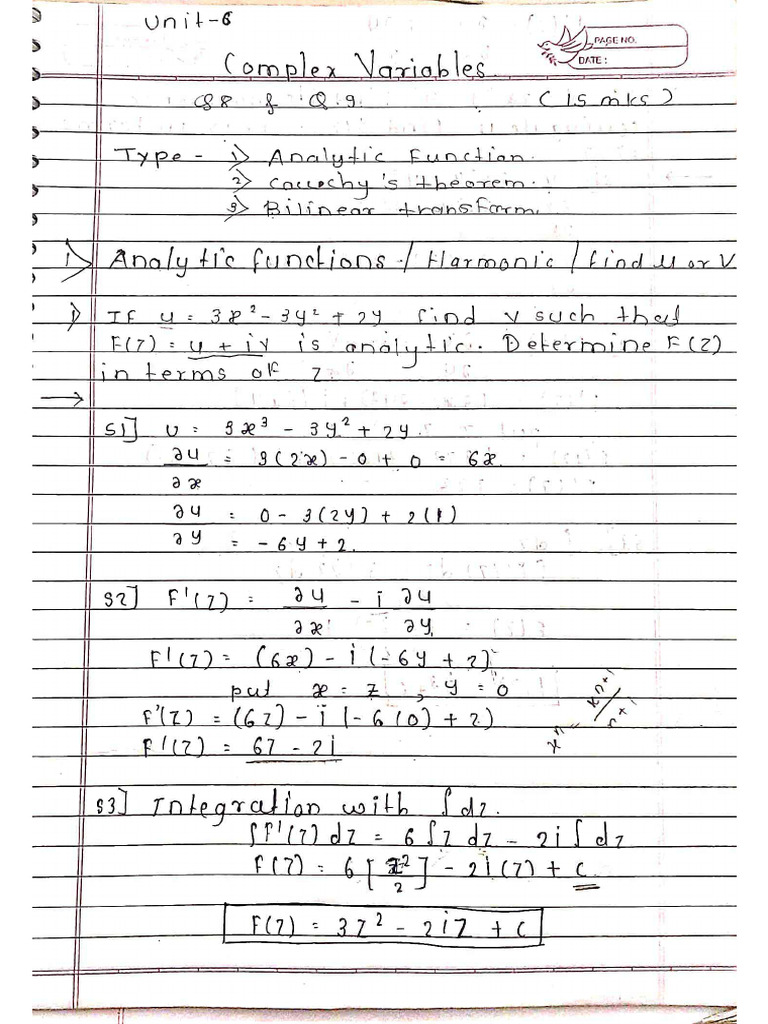 Unit-6
PAGE NO.
DATE :
Complex Variables.
Q8 & Q.9. (15 mks)
Type - 1) Analytic Function.
2) Cauochy's theorem.
3) Bilinear transform.
1) Analytic functions / Harmonic / find u or v
1) If u = 3x² - 3y² + 2y find v such that
F(z) = u + iv is analytic. Determine F(z)
in terms of z.
→
S1] u = 3x³ - 3y² + 2y.
∂u/∂x = 3(2x) - 0 + 0 = 6x.
∂u/∂y = 0 - 3(2y) + 2(1)
= -6y + 2.
S2] F'(z) = ∂u/∂x - i ∂u/∂y
F'(z) = (6x) - i(-6y + 2)
put x = z , y = 0
F'(z) = (6z) - i(-6(0) + 2)
F'(z) = 6z - 2i
xⁿ = xⁿ⁺¹/n+1
S3] Integration with ∫dz.
∫F'(z) dz = 6∫z dz - 2i∫dz
F(z) = 6[z²/2] - 2i(z) + c
F(z) = 3z² - 2iz + c